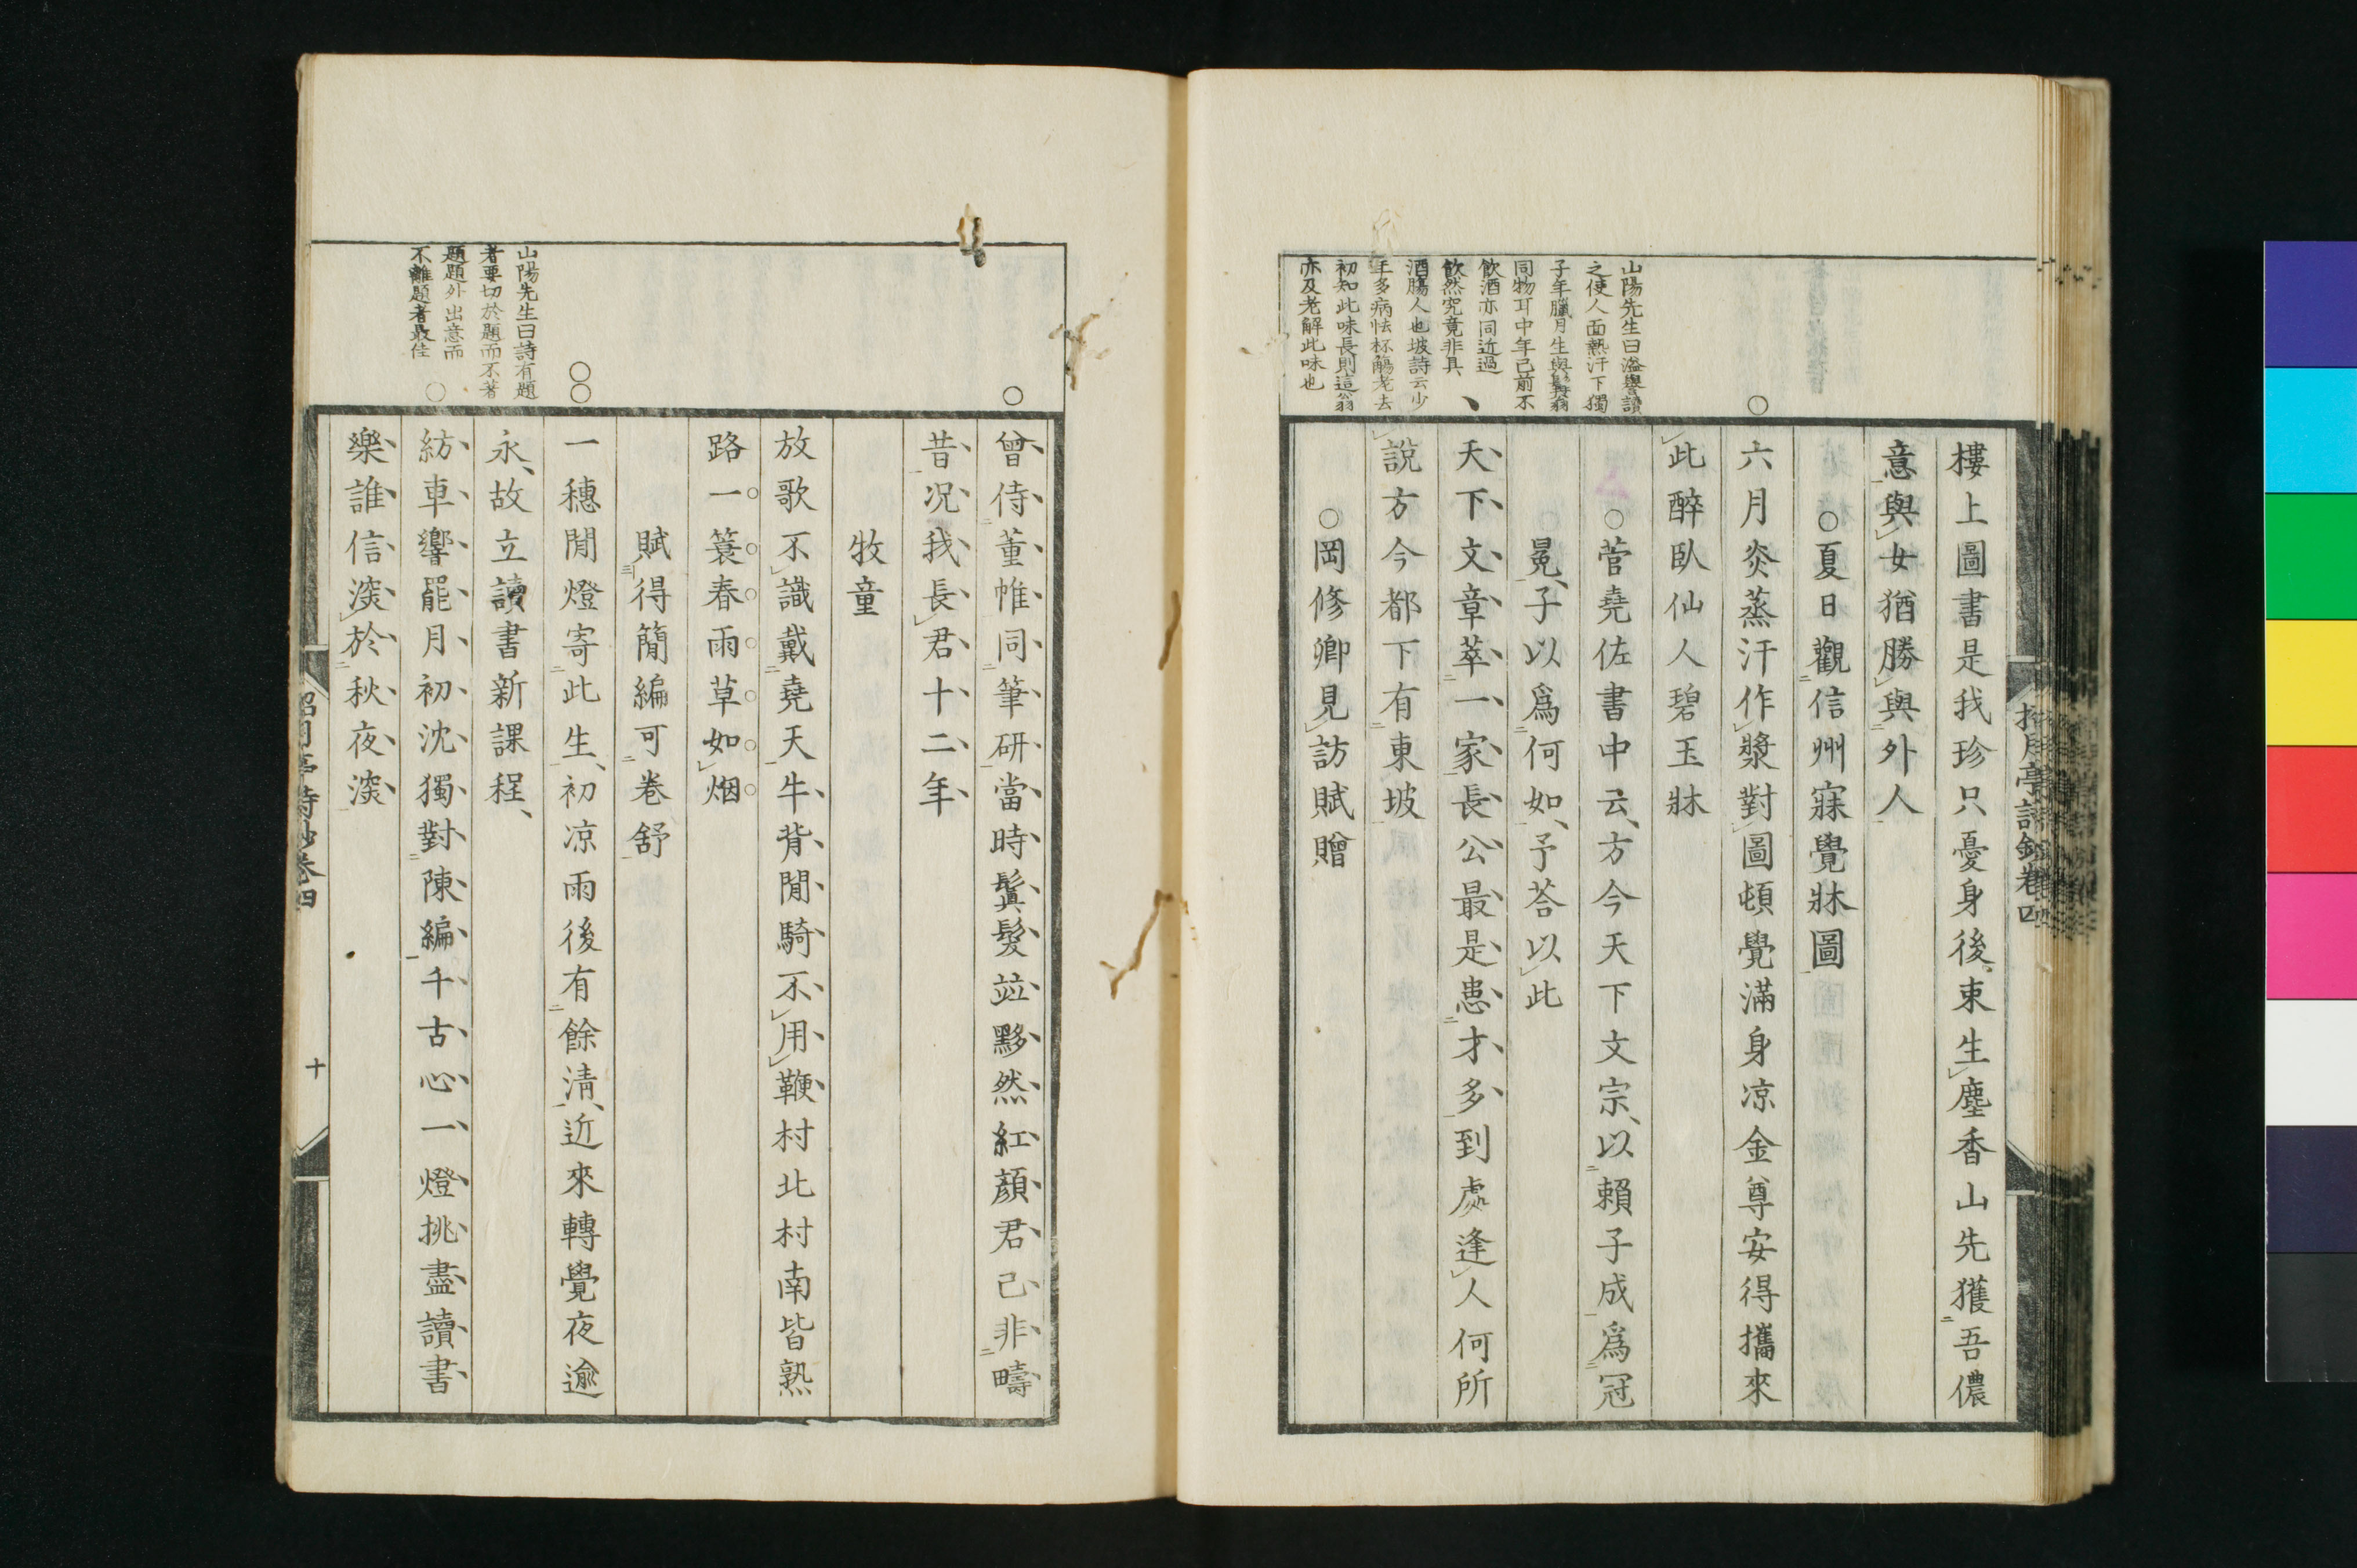 樓上圖書是我珍只憂身後束生塵香山先獲吾儂
意與女猶勝與外人
○夏日觀信州寐覺牀圖
六月炎蒸汗作漿對圖頓覺滿身凉金尊安得攜來
此醉臥仙人碧玉牀
○菅堯佐書中云方今天下文宗以賴子成爲冠
冕子以爲何如予荅以此
天下文章萃一家長公最是患才多到處逢人何所
說方今都下有東坡
○岡修卿見訪賦贈
山陽先生曰溢譽讀
之使人面熱汗下獨
子年臘月生與髯翁
同物耳中年已前不
飲酒亦同近過
飲然究竟非具
酒膓人也坡詩云少
年多病怯杯觴老去
初知此味長則這翁
亦及老解此味也
曾侍董帷同筆研當時鬒髮竝黟然紅顏君已非疇
昔况我長君十二年
牧童
放歌不識戴堯天牛背閒騎不用鞭村北村南皆熟
路一簑春雨草如烟
賦得簡編可卷舒
一穗閒燈寄此生初凉雨後有餘淸近來轉覺夜逾
永故立讀書新課程
紡車響罷月初沈獨對陳編千古心一燈挑盡讀書
樂誰信淡於秋夜淡
山陽先生曰詩有題
者要切於題而不著
題題外出意而
不離題者最佳
十